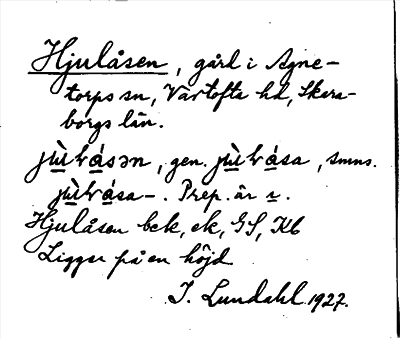 Hjulåsen, gård i Agne-
torps sn, Vartofta hd, Skara-
borgs län.
jùl⁠ásən, gen. jùlása, smns.
jùlása-. Prep. är
Hjulåsen bek, ek, GS, Kb
Ligger på en höjd
I. Lundahl 1927.